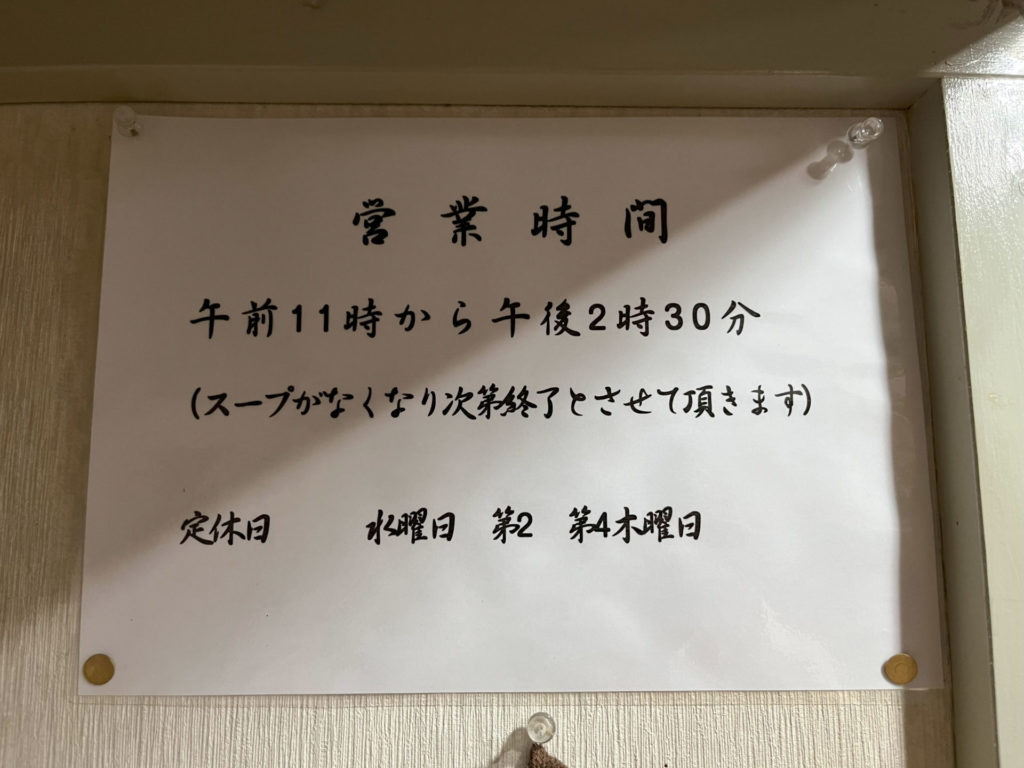 営業時間
午前11時から午後2時30分
(スープがなくなり次第終了とさせて頂きます)
定休日　水曜日　第2　第4木曜日